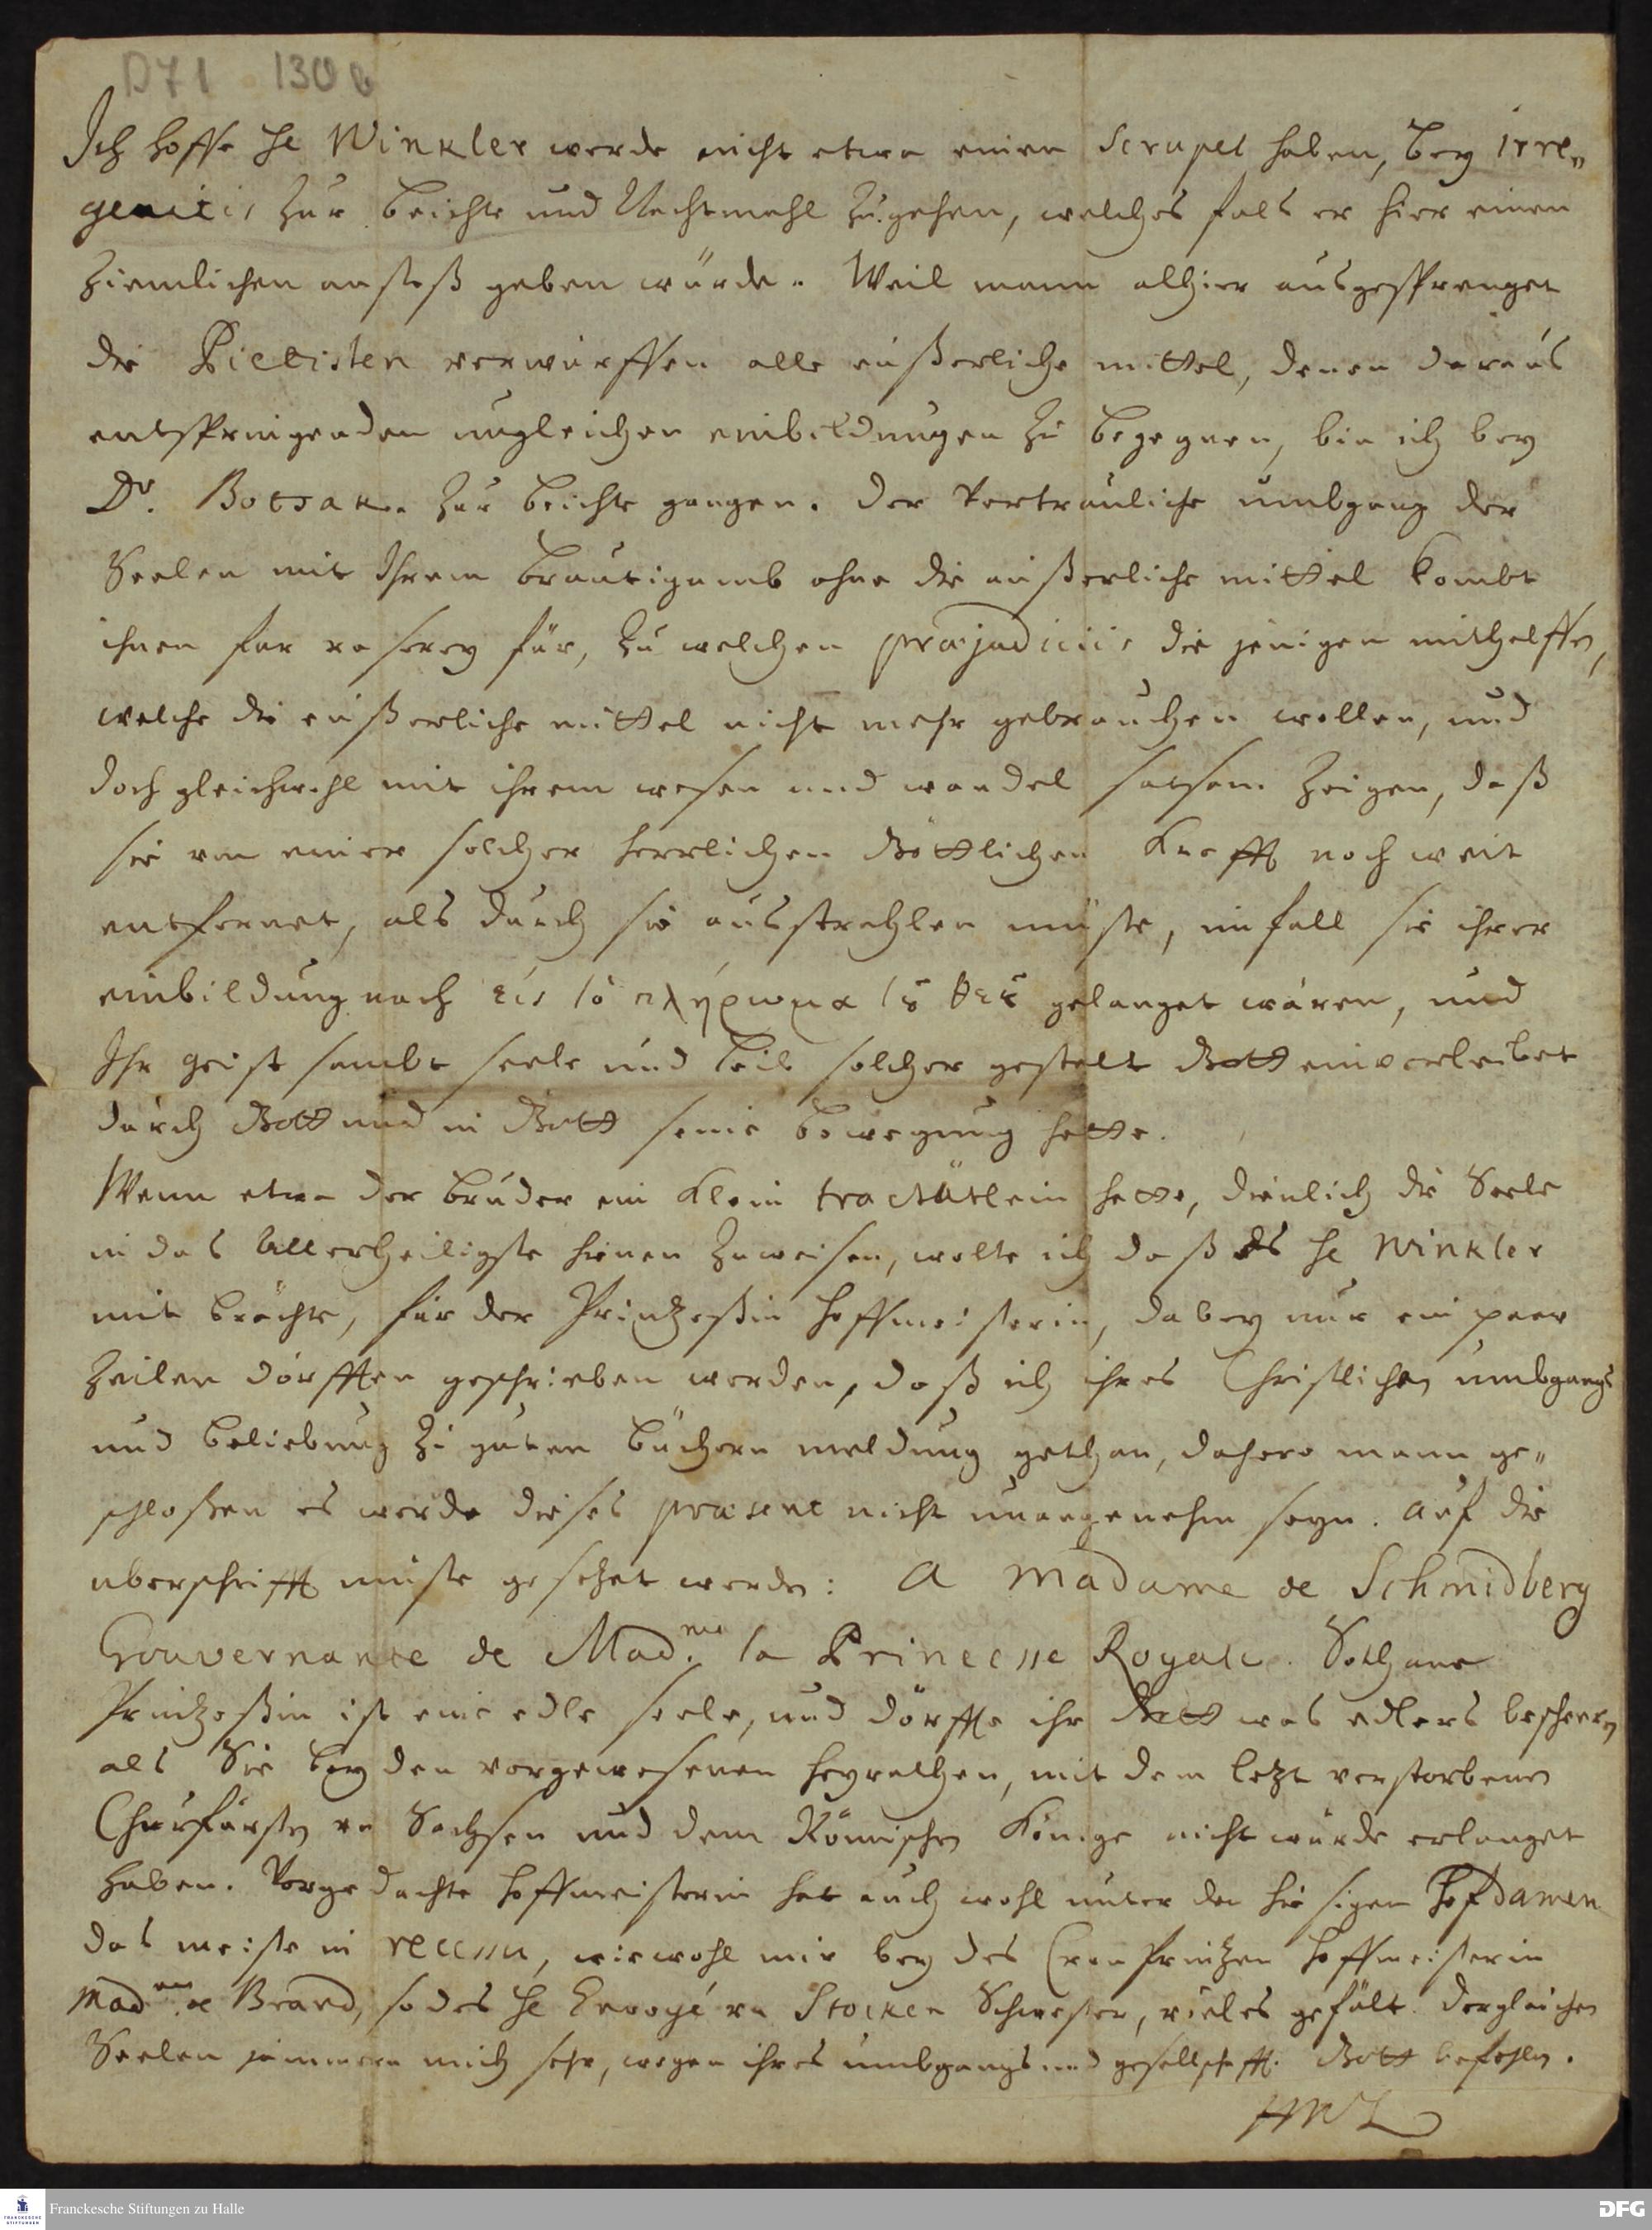 D71 130 b
Ich hoffe H. Winkler werde nicht etwa einen Scrupel haben, bey irre„
genitis zur beichte und Nachtmahl zu gehen, welches fals er hier einen
ziemlichen anstoß geben würde. Weil mann alhier ausgesprenget
die Pietisten verwürffen alle eußerliche mittel, denen daraus
entspringenden ungleichen einbildungen zu begegnen, bin ich bey
Dr. Botsak. zur beichte gangen. Der vertrauliche umbgang der
Seelen mit Ihrem bräutigamb ohne die eußerliche mittel kombt
ihnen für raserey für, zu welchen præjudiciis die jenigen mithelffen,
welche die eußerliche mittel nicht mehr gebrauchen wollen, und
doch gleichwohl mit ihrem wesen und wandel satsam zeigen, daß
sie von einer solcher herrlichen Göttlichen Krafft noch weit
entfernet, als durch sie ausstrahlen müste, im fall sie ihrer
einbildung nach εἰς τὸ πλήρωμα τȣ θεȣ gelanget wären, und
Ihr geist sambt seele und leib solcher gestalt Gott einverleibet
durch Gott und in Gott seine bewegung hette.
Wenn etwa der bruder ein klein tractätlein hette, dienlich die Seele
in das Allerheiligste hienen zuweisen, wolte ich daß es H. Winkler
mit brächte, für der Printzeßin hoffmeisterin, dabey nur ein paar
zeilen dörfften geschrieben werden, daß ich ihres Christlichen umbgangs
und beliebung zu guten büchern meldung gethan, dahero mann ge„
schloßen es werde dieses præsent nicht unangenehm seyn. Auf die
uberschrifft müste gesetzet werden: A Madame de Schmidberg
Gouvernante de Mad.me la Princesse Royale. Sothane
Printzeßin ist eine edle seele, und dörffte ihr Gott was edlers bescheren
als Sie bey den vorgewesenen heyrathen, mit dem letzt verstorbenen
Churfürsten von Sachsen und dem Römischen Könige nicht würde erlanget
haben. Vorgedachte hoffmeisterin hat auch wohl unter den hiesigen Hofdamen
das meiste in recessu, wiewohl mir bey des Cron Printzen hoffmeisterin
Mad.me de Brand, so des H. Envoyé von Stocken Schwester, vieles gefält. Dergleichen
Seelen jammern mich sehr, wegen ihres umbgangs und gesellschafft. Gott befohlen.
HWL
Franckesche Stiftungen zu Halle
DFG